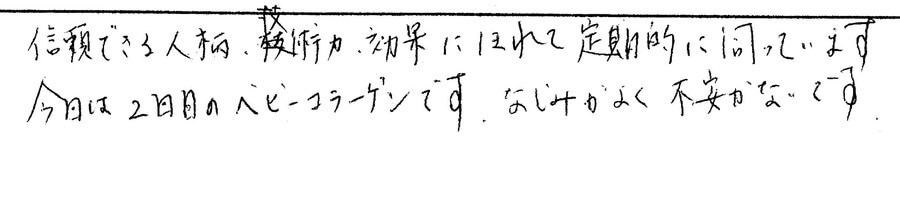 信頼できる人柄、技術力、効果にほれて定期的に伺っています
今日は2回目のベビーコラーゲンです。なじみがよく不安がないです。